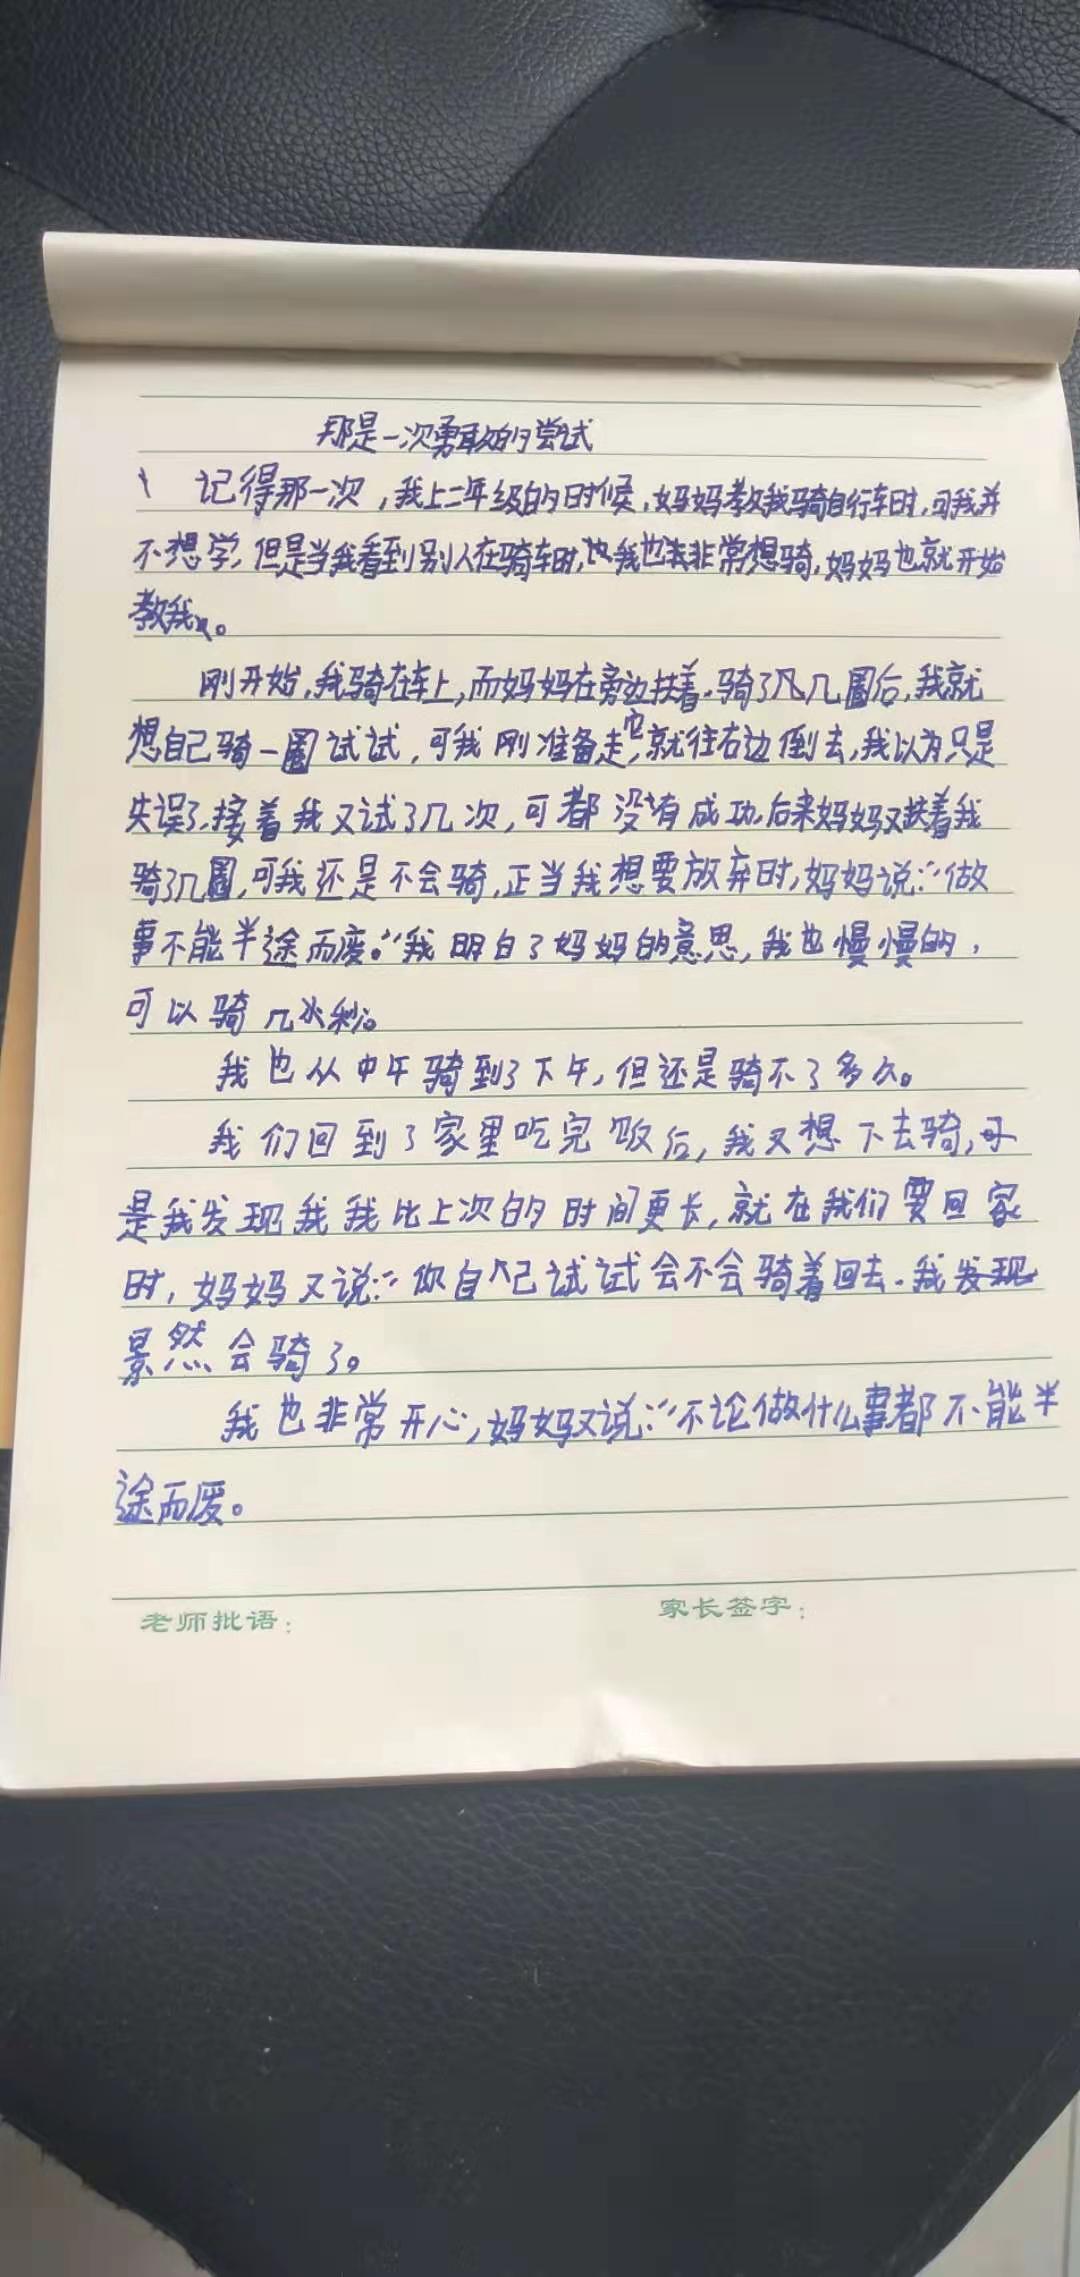 那是一次勇敢的尝试
记得那一次，我上二年级的时候，妈妈教我骑自行车时，可我并
不想学，但是当我看到别人在骑车时，我也非常想骑，妈妈也就开始
教我。
刚开始，我骑在车上，而妈妈在旁边扶着，骑了几圈后，我就
想自己骑一圈试试，可我刚准备走，它就往右边倒去，我以为只是
失误了，接着我又试了几次，可都没有成功，后来妈妈又扶着我
骑了几圈，可我还是不会骑，正当我想要放弃时，妈妈说：“做
事不能半途而废。”我明白了妈妈的意思，我也慢慢的，
可以骑几秒。
我也从中午骑到了下午，但还是骑不了多久。
我们回到了家里吃完饭后，我又想下去骑，可
是我发现我我比上次的时间更长，就在我们要回家
时，妈妈又说：“你自己试试会不会骑着回去。我发现
竟然会骑了。
我也非常开心，妈妈又说：“不论做什么事都不能半
途而废。
老师批语：
家长签字：